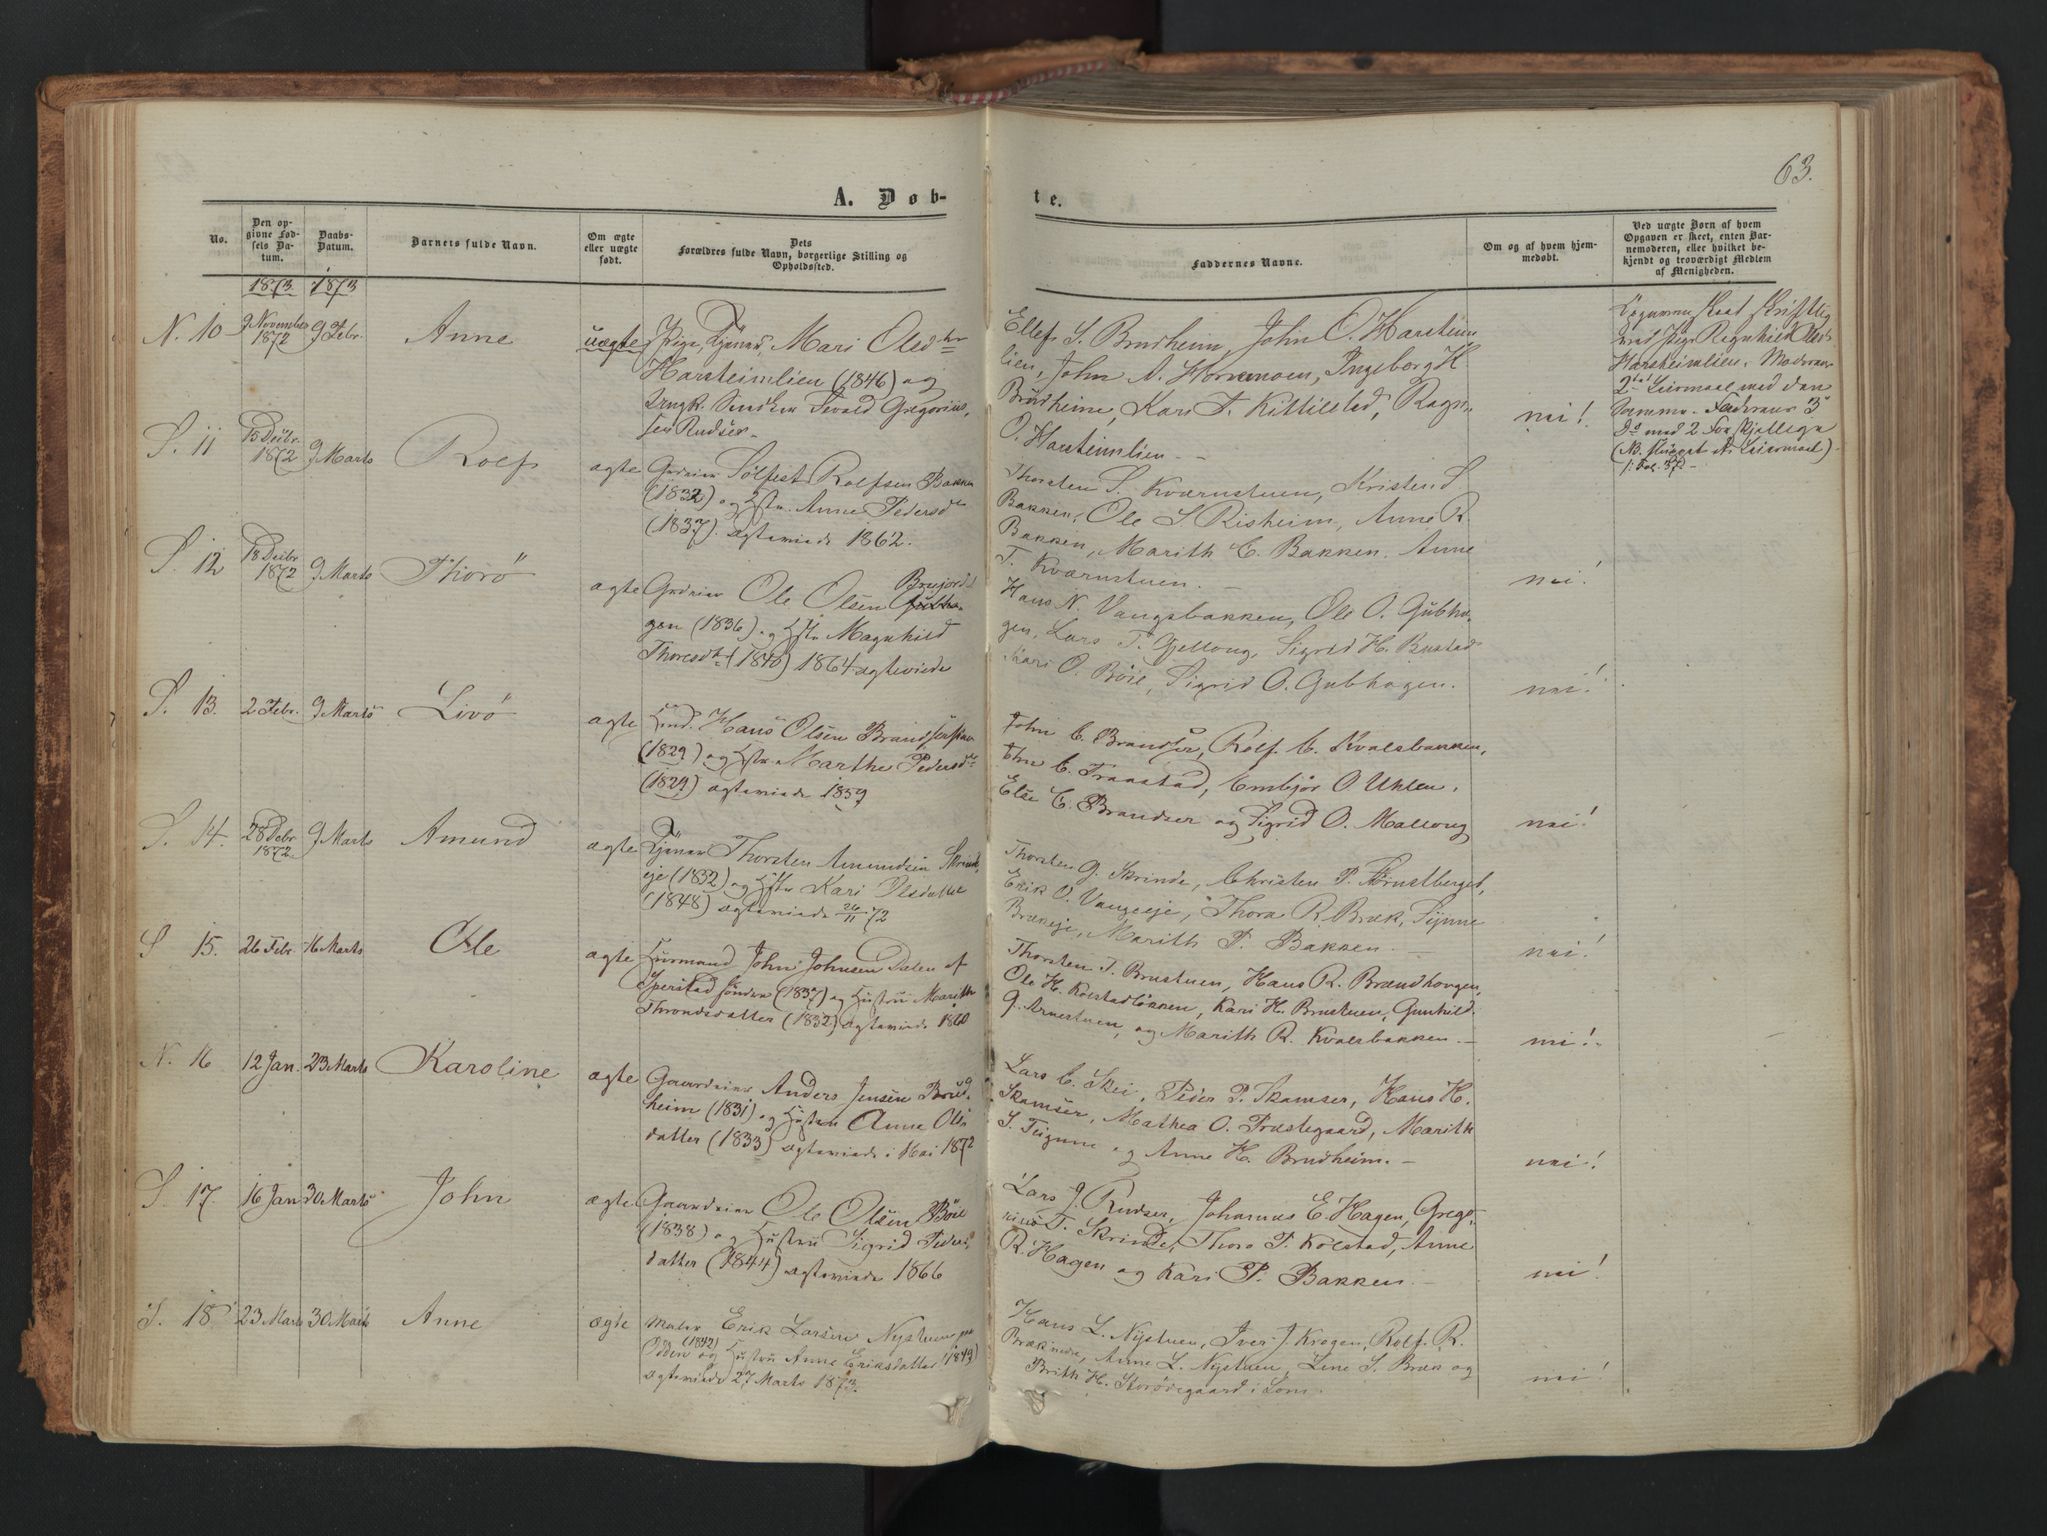 63.
A. Døbte.
No.
Den opgivne Fødsels Datum.
Daabs-Datum.
Barnets fulde Navn.
Om ægte eller uægte født.
Dets Forældres fulde Navn, borgerlige Stilling og Opholdssted.
Faddernes Navne.
Om og af hvem hjemmedøbt.
Ved uægte Børn af hvem Opgaven er skeet, enten Barnemoderen, eller hvilket bekjendt og troværdigt Medlem af Menigheden.
1873 1873
N. 10 9 November 1872 9 Febr. Anne uægte
Pige, Tjener, Mari Olsdtr
Harsteimlien (1846) og
Ungk. Snedker Sevald Gregorius-
sen Rudser.
Ellef S. Brudheim, John O. Harsteim
lien, John A. Horumoen, Ingeborg K.
Brudheim, Kari T. Kittilstad, Ragn.
O. Harsteimlien - -
nei!
Opgaven skeet skriftlig
ved Pige Ragnhild Olsd.
Harsteimlien. Moderens
2det Leiermaal med den
samme. Faderens 3
do med 2 forskjellige
S. 11 15 Decbr. 1872 9 Marts Rolf ægte
Grdeier Sølfest Rolfsen Bakken
(1832) og Hstr. Anne Pedersdtr
(1837). Ægteviede 1862.
Thorsten S. Kværnstuen, Kristen S.
Bakken, Ole S. Risheim, Anne R.
Bakken, Marith E. Bakken. Anne
T. Kværnstuen. -
nei!
S. 12 18 Decbr 1872 9 Marts Thorø ægte
Grdeier Ole Olsen Gubha-
gen (1836) og Hstr Magnhild
Thoresdtr (1840) 1864 ægteviede
Hans N. Vangsbakken, Ole O. Gubha-
gen, Lars T. Gjellong, Sigrid H. Bustad
Kari O. Böie, Sigrid O. Gubhagen.
nei!
S. 13. 2 Febr. 9 Marts Livø ægte
Hans Olsen
(1829) og Hstr. Marthe Pedersdtr
(1829) ægteviede 1859
John C. Brandser, Rolf C. Kvalsbakken,
C. Traastad, Embjør O Uhlen,
Else C. Brandser og Sigrid O. Mallong
nei!
S. 14. 28 Decbr 1872. 9 Marts Amund ægte
Tjener Thorsten Amundsen Skrinde
eje (1832) og Hstr Kari Olsdatter
(1848) ægteviede 26/11 72
Thorsten G. Skrinde, Christen P. Hørnstberget,
Erik O. Vangeeje, Thora R. Bræk, Synne
Brækeje, Marith P. Bakken. -
nei!
S 15. 26 Febr. 16 Marts Ole ægte
Huusmand John Johnsen Dalen af
Sperstad søndre (1837) og Hustru Marith
Throndsdatter (1832) ægteviede 1860
Thorsten T. Brustuen, Hans R. Brændhougen,
Ole H. Kolstadløkken, Kari H. Brustuen, Gunhild
G. Arnestuen, og Marith R. Kvalsbakken. -
nei!
N. 16 12 Jan. 23 Marts Karoline ægte
Gaardeier Anders Jensen Brud-
heim (1831) og Hustru Anne Ols
datter (1833) ægteviede i Mai 1872
Lars C. Skei, Peder P. Skamser, Hans H.
Skamser, Mathea O. Præstegaard, Marith
S. Teigum og Anne H. Brudheim. -
nei!
S. 17. 16 Jan 30 Marts John ægte
Gaardeier Ole Olsen Böie
(1838) og Hustru Sigrid Peders
datter (1844) ægteviede 1866
Lars J. Rudser, Johannes E. Hagen, Grego-
rius T. Skrinde, Thora P. Kolstad, Anne
R. Hagen og Kari P. Bakken. -
nei!
S. 18 23 Marts 30 Marts Anne ægte
Maler Erik Larsen Nystuen paa
Odden (1842) og Hustru Anne Eriksdatter (1849)
ægteviede 27 Marts 1873.
Hans L. Nystuen, Iver J. Krogen, Rolf R.
Bræk nedre, Anne L. Nystuen, Lene S. Bræk og
Brith H. Storødegaard i Lom.
nei!